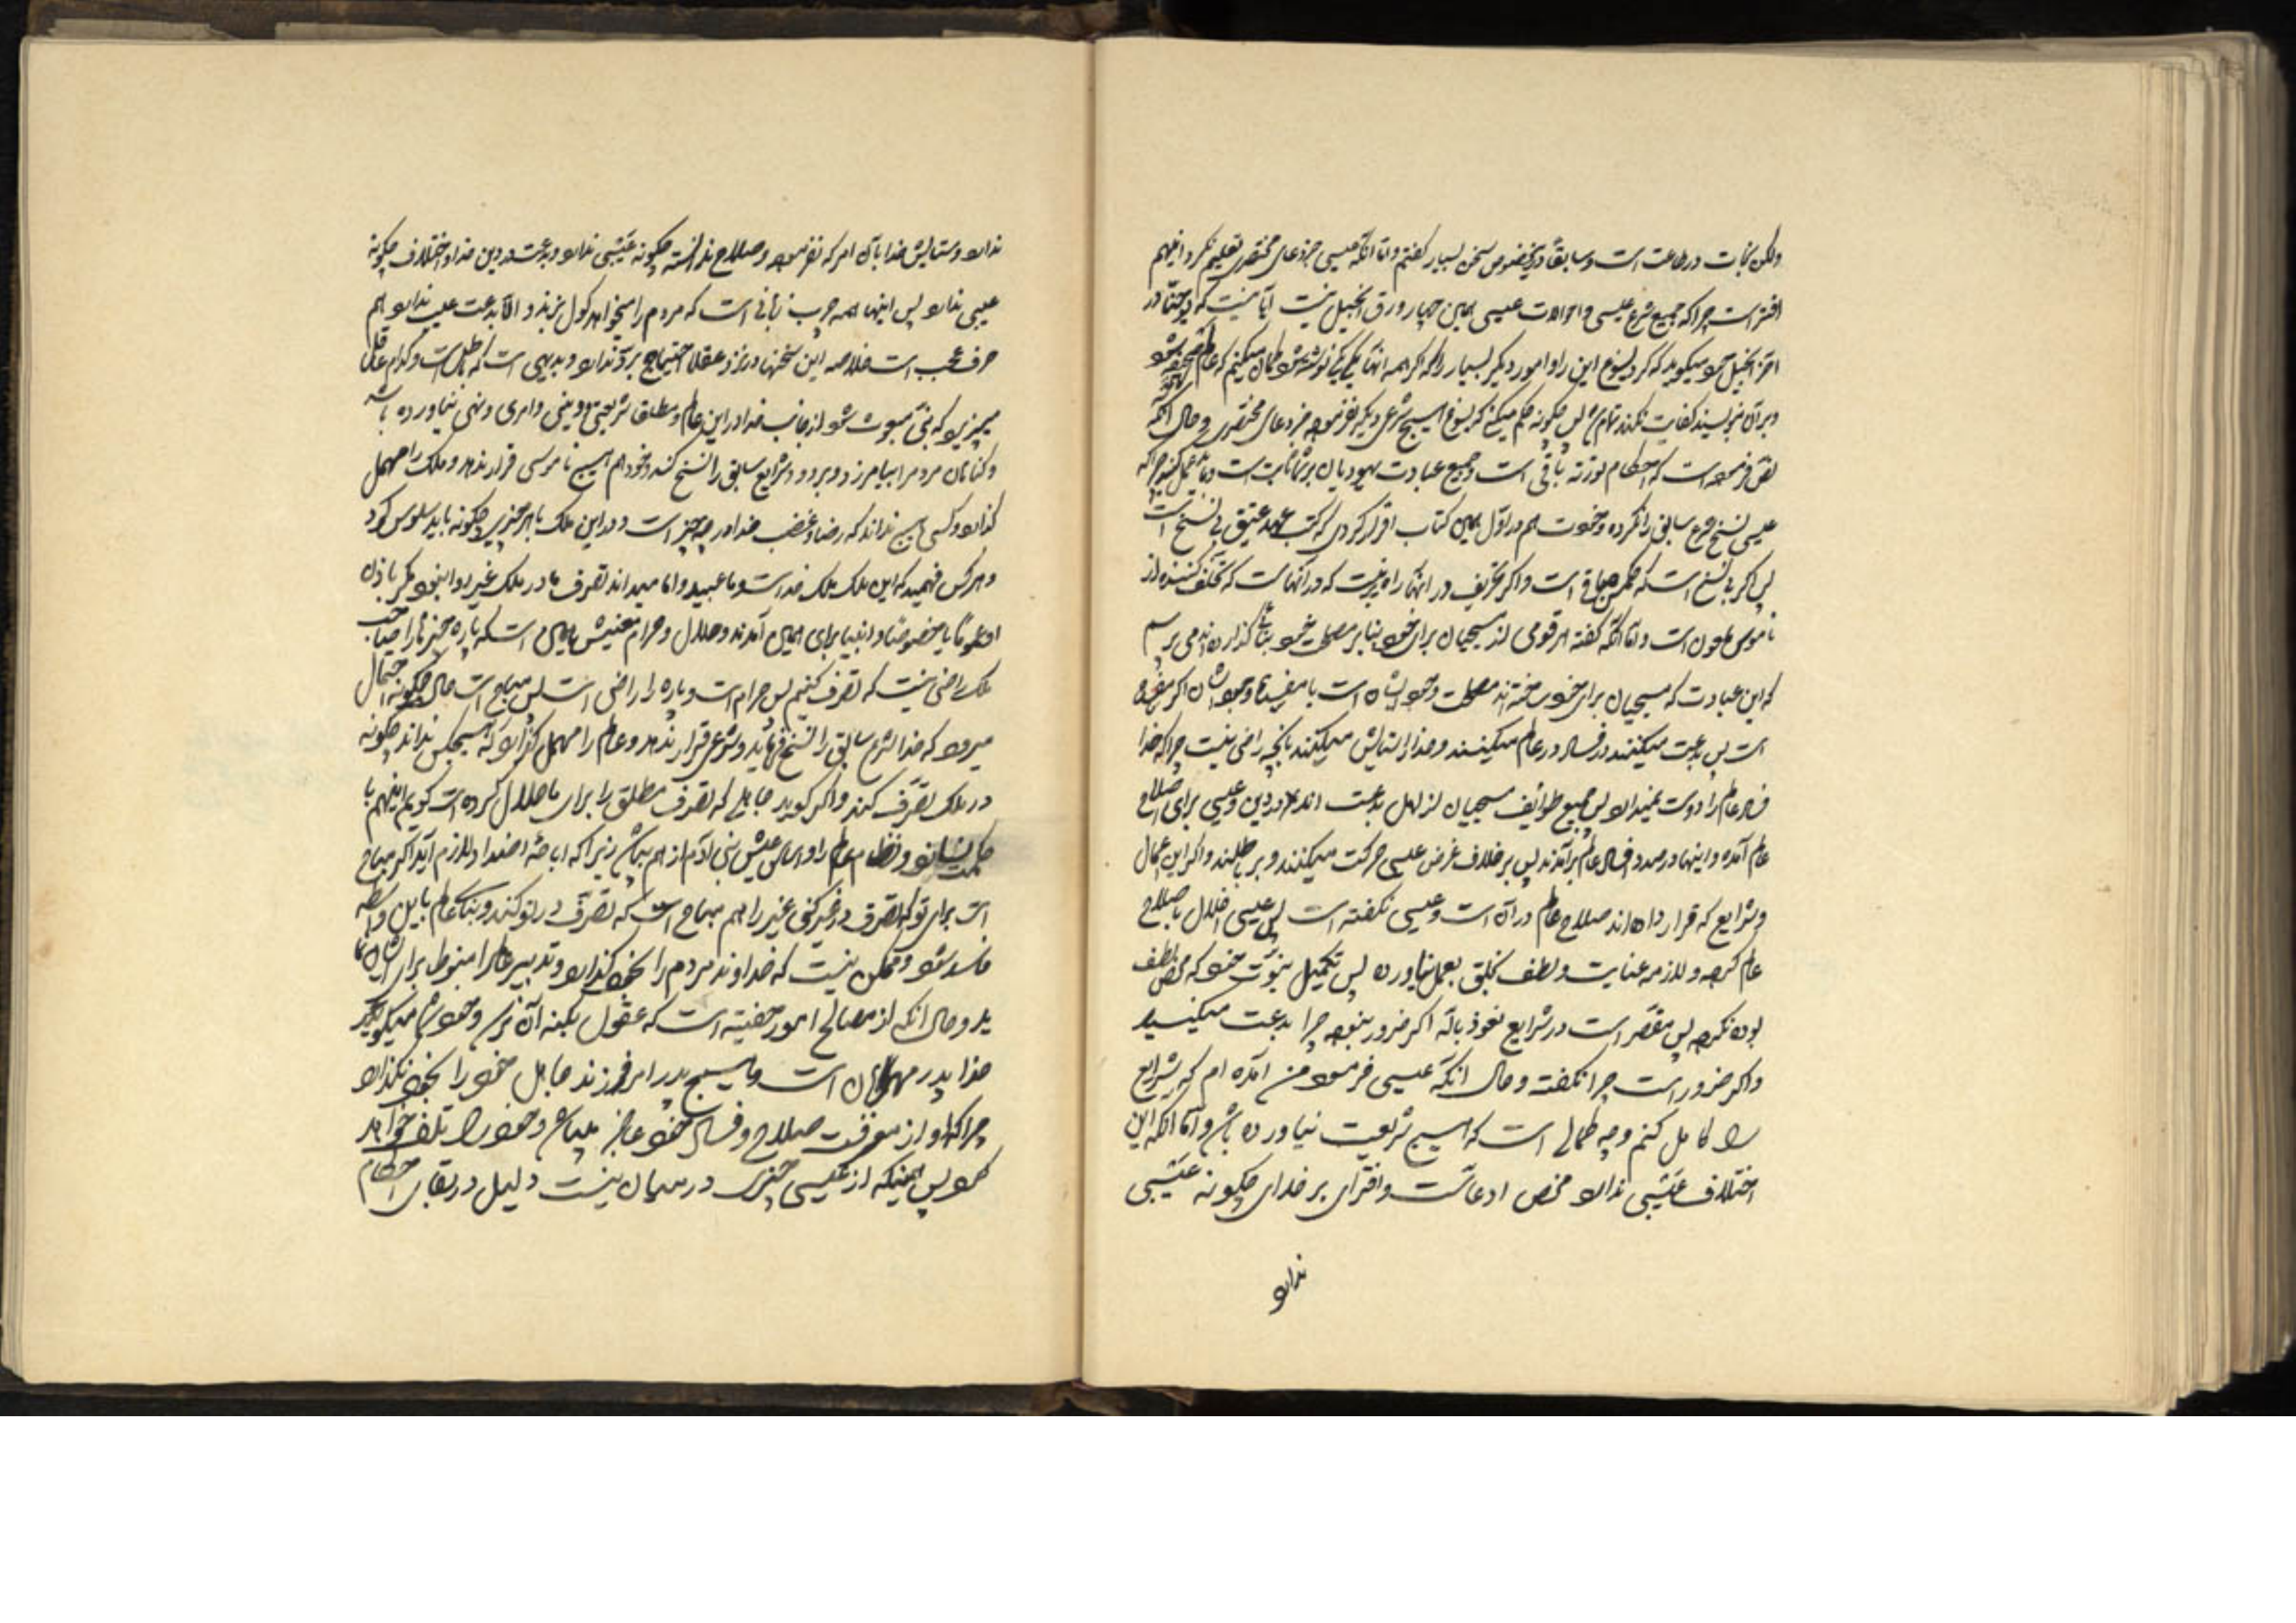 ولکن نجات در طاعت است و سابقاً در این خصوص سخن بسیار گفتم و اما آنکه عیسی جز دعای مختصری تعلیم نکرد اینهم
افترا است چرا که جمیع شرع عیسی و احوالات عیسی همین چهار ورق انجیل نیست آیا نیست که یوحنا در
آخر انجیل خود میگوید که کرد یسوع این را و امور دیگر بسیار را که اگر همه آنها یکی یکی نوشته شود گمان میکنم که عالم
و بر آن بنویسند کفایت نکند تمام شد پس چگونه حکم میکنی که یسوع المسیح شرعی دیگر نفرموده جز دعای مختصری و حال آنکه
نص فرموده است که احکام تورته باقی است و جمیع عبادت یهودیان بر شما ثابت است چرا که
عیسی نسخ شرع سابق را نکرده و خودت هم در اول همین کتاب اقرار کردی که کتب عهد عتیق بی نسخ است
پس اگر بی نسخ است که حکمش باقی است و اگر تحریف در آنها راه بر نیست که در آنهاست که تخلف کننده از
ناموس ملعون است و اما آنکه گفته هر قومی از مسیحیان برای خود بنا بر مصلحت خود بنائی گذارده اند می پرسم
که این عبادت که مسیحیان برای خود ساخته اند مصلحت وجودشان است یا مفسده وجودشان اگر مفسده
است پس بدعت میکنند و فساد در عالم میکنند و خدا را ستایش میکنند بآنچه راضی نیست چرا که خدا
فساد عالم را دوست نمیدارد پس جمیع طوایف مسیحیان از اهل بدعت اند در دین و عیسی برای اصلاح
عالم آمده و اینها در صدد فساد عالم برآمدند پس بر خلاف غرض عیسی حرکت میکنند و بر باطلند و اگر این اعمال
و شرایع که قرار داده اند صلاح عالم در آن است و عیسی نگفته است پس عیسی اخلال باصلاح
عالم کرده و لازمه عنایت و لطف بخلق بعمل نیاورده پس تکمیل نبوت خود که محض لطف
بوده نکرده پس مقصر است در شرایع نعوذ بالله اگر ضرور نبوده چرا بدعت میکنید
و اگر ضرور است چرا نگفته و حال آنکه عیسی فرمود من آمده ام که شرایع
را کامل کنم و چه کمالی است که هیچ شریعت نیاورده باشد و اما آنکه این
اختلاف عیبی ندارد محض ادعاست و افترای بر خدای چگونه عیبی
ندارد
ندارد و ستایش خدا بآن امر که نفرموده و صلاح ندانسته چگونه عیبی ندارد و بدعت در دین خدا و اختلاف چگونه
عیبی ندارد پس اینها همه چرب زبانی است که مردم را میخواهد گول بزند و الا بدعت عیب ندارد هم
حرف عجب است خلاصه این سخنها در نزد عقلا احتیاج برد ندارد و بدیهی است که باطل است و کدام عاقل
میپذیرد که نبی مبعوث شود از جانب خدا در این عالم و مطلقا شریعتی و دینی و امری و نهی نیاورده باشد
و گناهان مردم را بیامرزد و برود و شرایع سابق را نسخ کند و خود هم هیچ ناموسی قرار ندهد و ملک را مهمل
گذارد و کسی هیچ نداند که رضا و غضب خدا در چه چیز است و در این ملک با هر چیزی چگونه باید سلوک کرد
و هر کس فهمید که این ملک ملک خداست و ما عبید و اما میداند تصرف ما در ملک غیر روا نبود مگر باذن
او عموماً یا خصوصاً و انبیا برای همین آمدند و حلال و حرام معنیش همین است که پاره چیزها را صاحب
ملک راضی نیست که تصرف کنیم پس حرام است و پاره را راضی است پس مباح است حال چگونه احتمال
میرود که خدا شرع سابق را نسخ فرماید و شرعی قرار ندهد و عالم را مهمل گذارد که هیچکس نداند چگونه
در ملک تصرف کند و اگر گوید جاهلی که تصرف مطلق را برای ما حلال کرده است گویم اینهم با
حکمت نسازد و نظام عالم را و اساس عیش بنی آدم از هم بپاشد زیرا که اباحه اضداد لازم آید اگر مباح
است برای تو که تصرف در غیر کنی غیر را هم مباح است که تصرف در تو کند و بنای عالم باین واسطه
فاسد شود و ممکن نیست که خداوند مردم را بخود گذارد و تدبیر عالم را منوط برای
بد و حال آنکه از مصالح امور خفیه است که عقول بکنه آن نرسد و خود شما میگوئید
خدا پدر مهربان است و هیچ پدر امر فرزند جاهل خود را بخود نگذارد
چرا که او از معرفت صلاح و فساد خود عاجز میباشد و خود را تلف خواهد
نمود پس همینکه از عیسی چیزی در میان نیست دلیل در بقای احکام